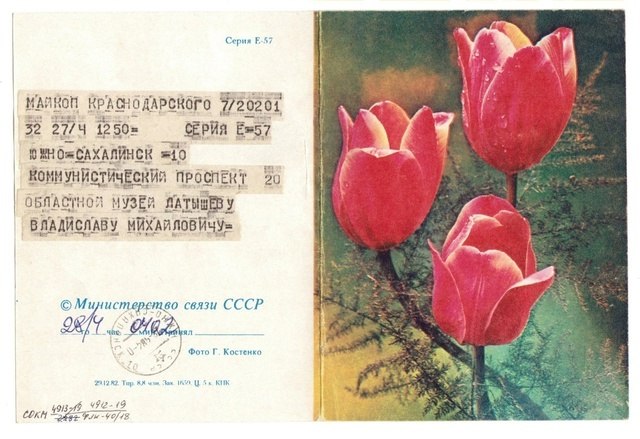 Серия Е-57
МАЙКОП КРАСНОДАРСКОГО 7/20201
32 27/Ч 1250= СЕРИЯ Е=57
ЮЖНО=САХАЛИНСК =10
КОММУНИСТИЧЕСКИЙ ПРОСПЕКТ 20
ОБЛАСТНОЙ МУЗЕЙ ЛАТЫШЕВУ
ВЛАДИСЛАВУ МИХАЙЛОВИЧУ=
© Министерство связи СССР
28/4 час. 0402 мин. принял
Фото Г. Костенко
29.12.82. Тир. 8,8 млн. Зак. 1659. Ц. 5 к. КПК
4913-19 4912-19
СОКМ